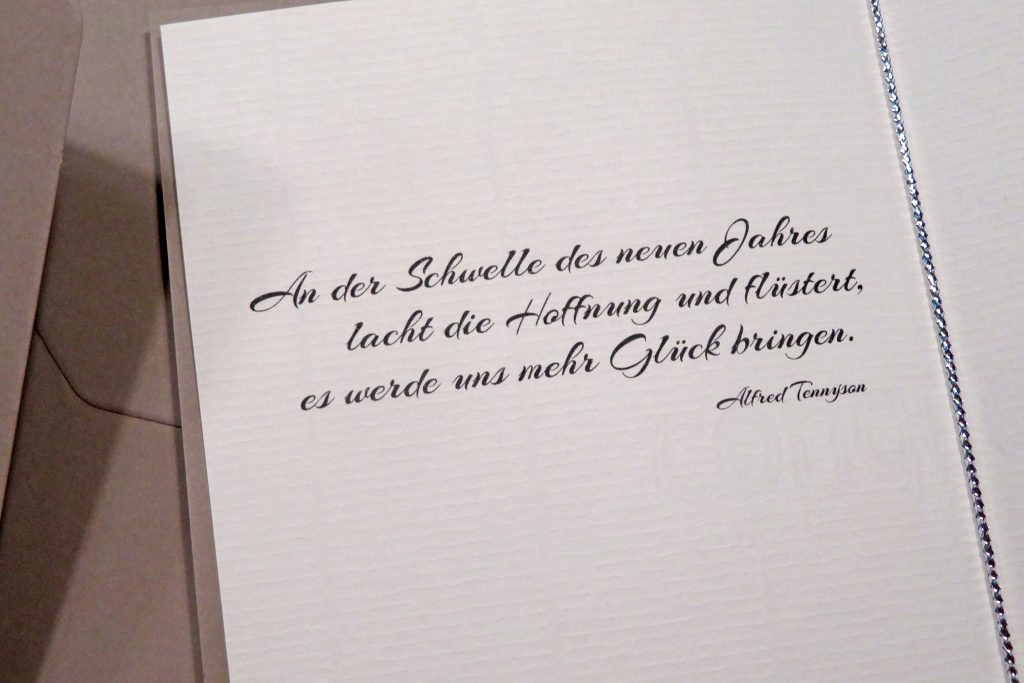 An der Schwelle des neuen Jahres
lacht die Hoffnung und flüstert,
es werde uns mehr Glück bringen.
Alfred Tennyson